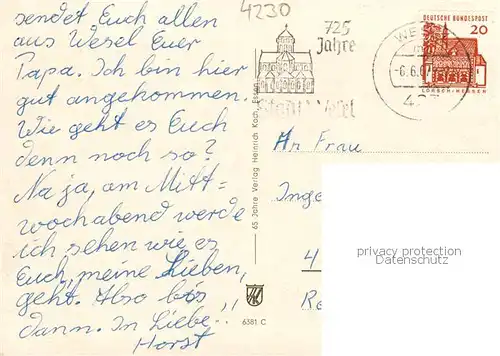 sendet Euch allen
aus Wesel Euer
Papa. Ich bin hier
gut angekommen.
Wie geht es Euch
denn noch so?
Na ja, am Mitt-
wochabend werde
ich sehen wie es
Euch, meine Lieben,
geht. Also bis
dann. In Liebe
Horst
4230
725
Jahre
Stadt Wesel
DEUTSCHE BUNDESPOST
20
LORSCH/HESSEN
45 Jahre Verlag Heinrich Koch, Essen
6381 C
An Frau
Inge
4
Re
privacy protection
Datenschutz